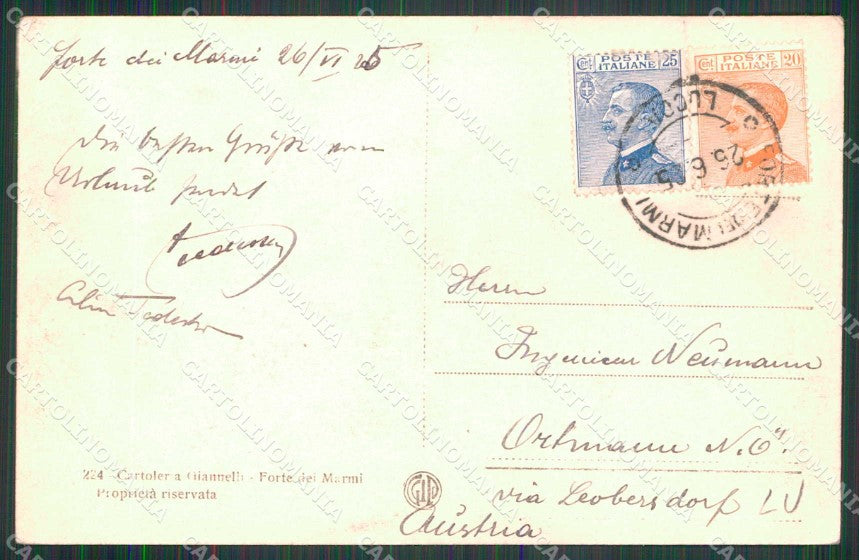 Forte dei Marmi 26/VI 25
Die besten Grüße vom
Urlaub sendet
Tedesko
Tedesko
224 - Cartoleria Giannelli - Forte dei Marmi
Proprietà riservata
POSTE ITALIANE 25
Cent
POSTE ITALIANE 20
Cent
FORTE DEI MARMI
LUCCA
26.6.25
Herrn
Ingenieur Neumann
Ortmann N.Ö.
via Leobersdorf
Austria
CARTOLINOMANIA